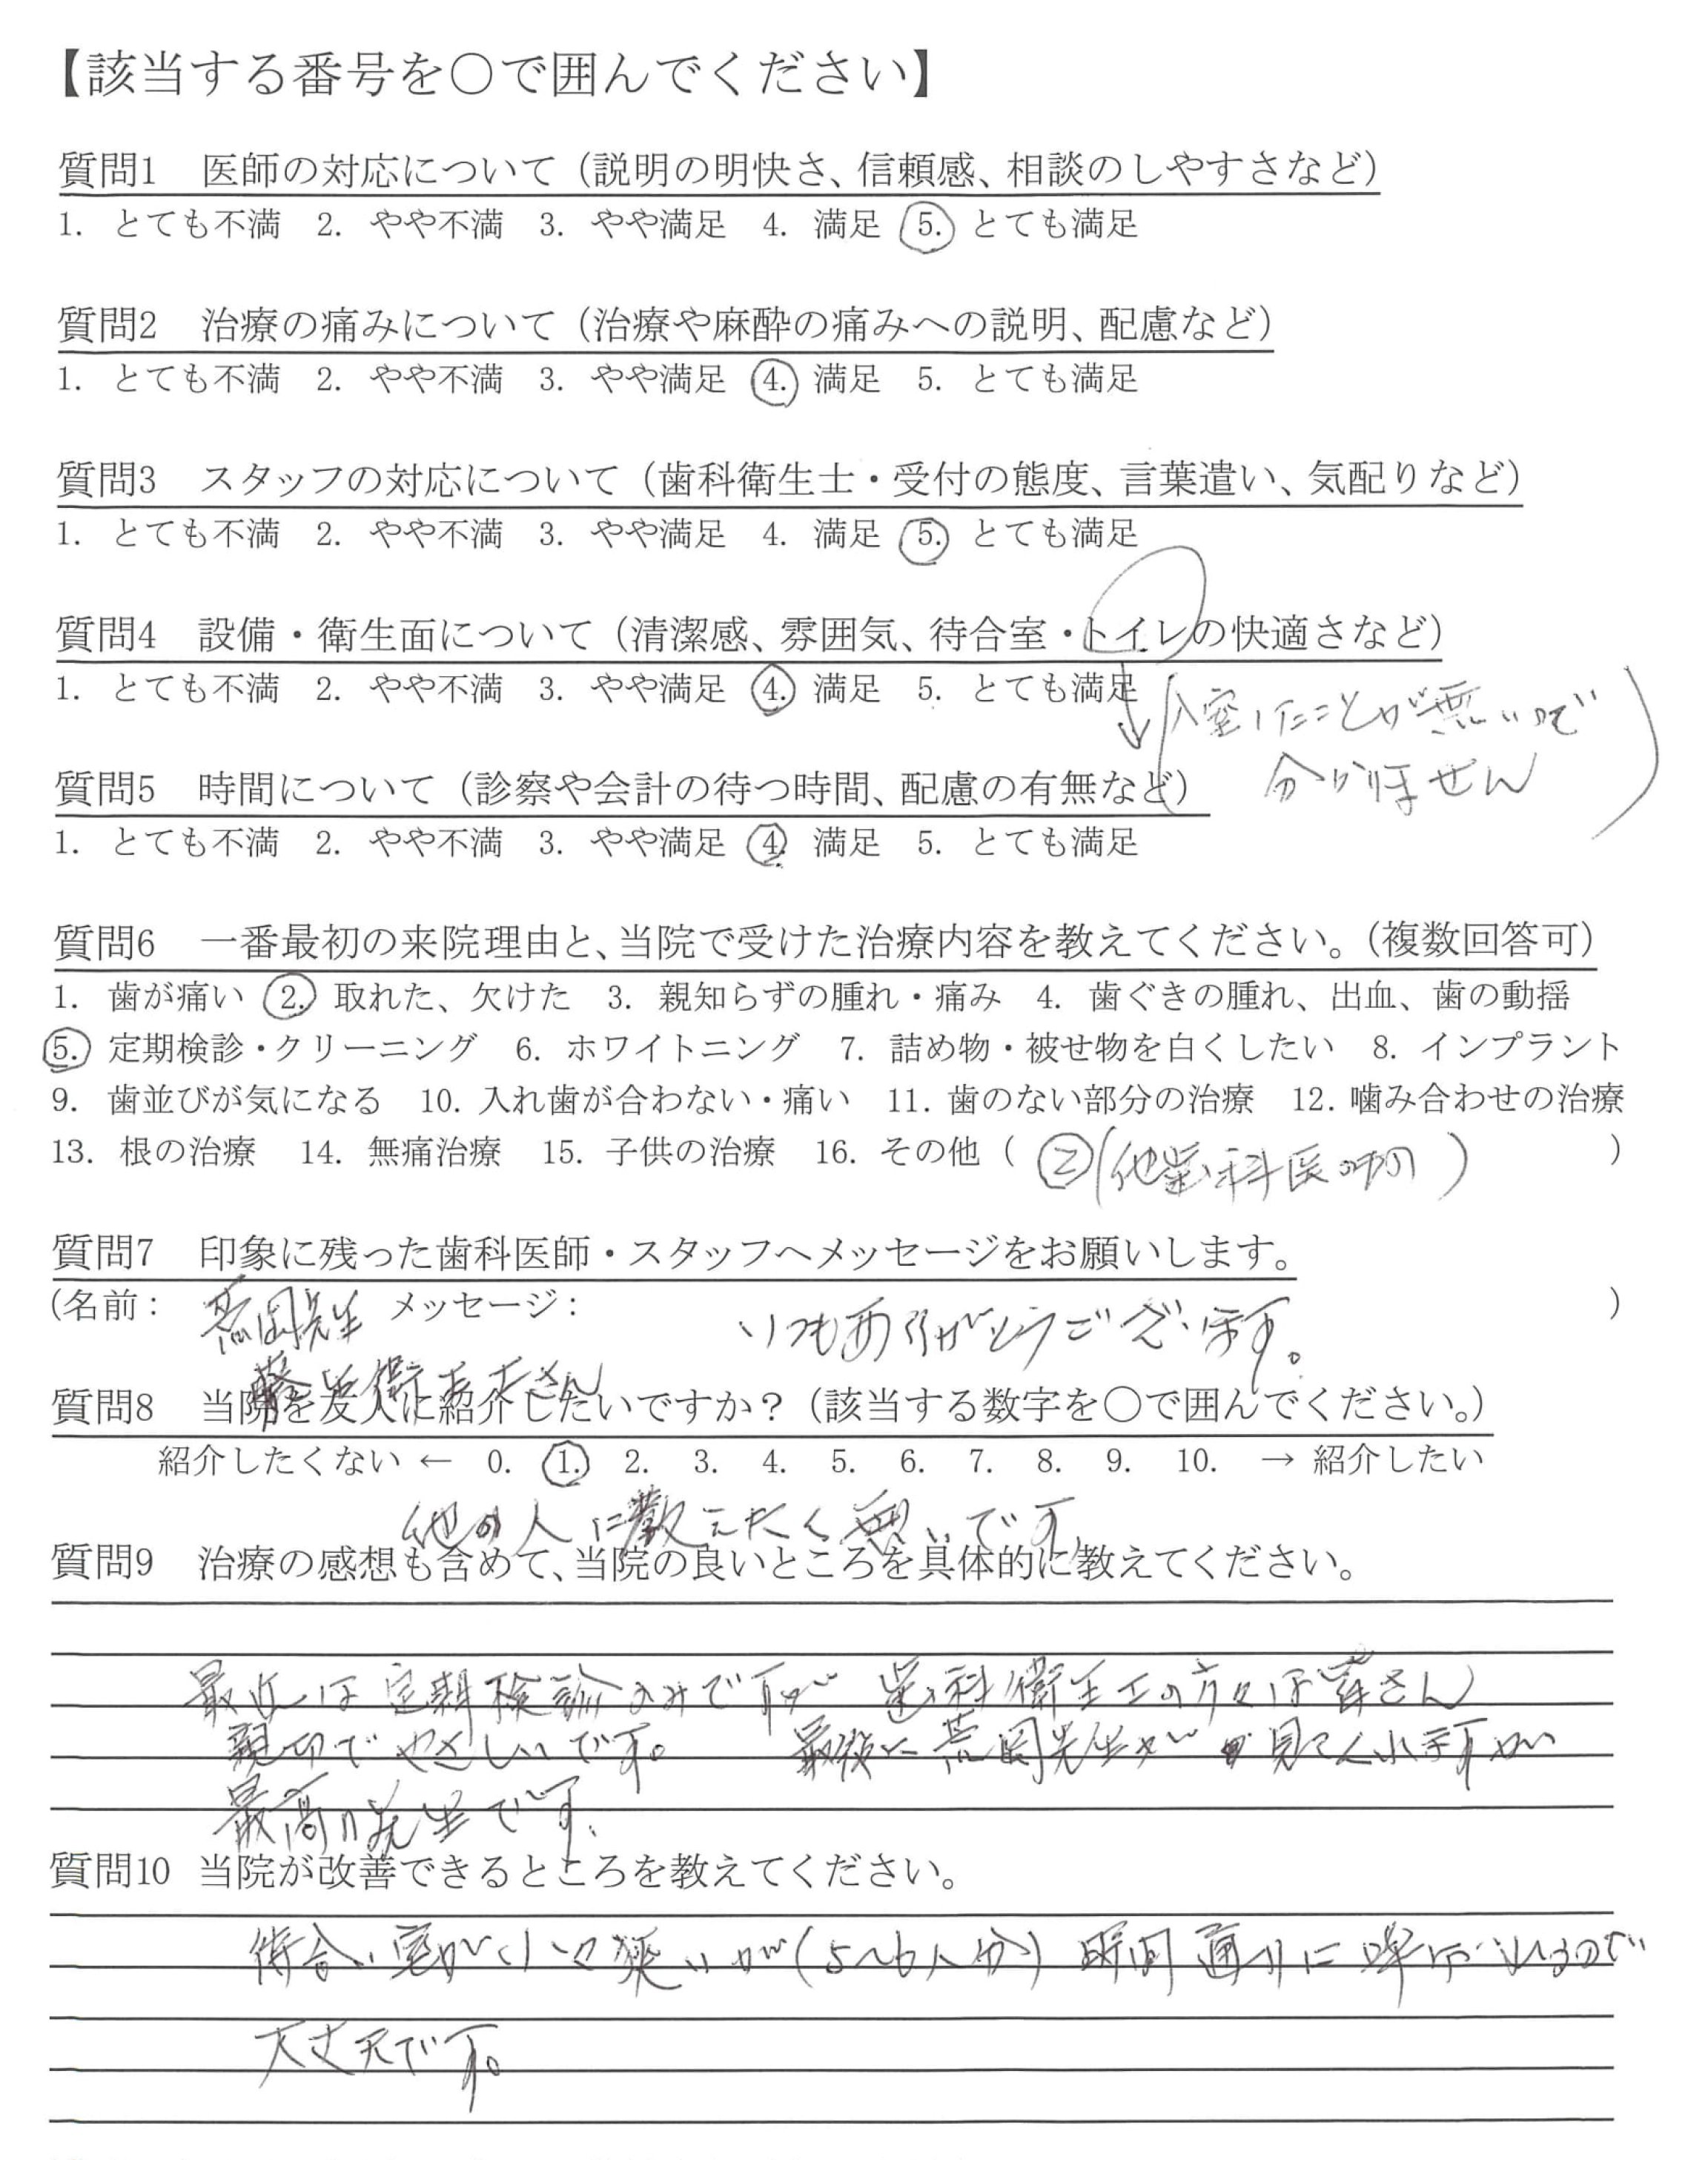 【該当する番号を○で囲んでください】
質問1 医師の対応について（説明の明快さ、信頼感、相談のしやすさなど）
1. とても不満 2. やや不満 3. やや満足 4. 満足 5. とても満足
質問2 治療の痛みについて（治療や麻酔の痛みへの説明、配慮など）
1. とても不満 2. やや不満 3. やや満足 4. 満足 5. とても満足
質問3 スタッフの対応について（歯科衛生士・受付の態度、言葉遣い、気配りなど）
1. とても不満 2. やや不満 3. やや満足 4. 満足 5. とても満足
質問4 設備・衛生面について（清潔感、雰囲気、待合室・トイレの快適さなど）
1. とても不満 2. やや不満 3. やや満足 4. 満足 5. とても満足
↓（入室したことが無いので
分かりません）
質問5 時間について（診察や会計の待つ時間、配慮の有無など）
1. とても不満 2. やや不満 3. やや満足 4. 満足 5. とても満足
質問6 一番最初の来院理由と、当院で受けた治療内容を教えてください。（複数回答可）
1. 歯が痛い 2. 取れた、欠けた 3. 親知らずの腫れ・痛み 4. 歯ぐきの腫れ、出血、歯の動揺
5. 定期検診・クリーニング 6. ホワイトニング 7. 詰め物・被せ物を白くしたい 8. インプラント
9. 歯並びが気になる 10. 入れ歯が合わない・痛い 11. 歯のない部分の治療 12. 噛み合わせの治療
13. 根の治療 14. 無痛治療 15. 子供の治療 16. その他（ ②（他歯科医 ） ）
質問7 印象に残った歯科医師・スタッフへメッセージをお願いします。
（名前： 荒岡先生 メッセージ： いつもありがとうございます。 ）
衛生士さん
質問8 当院を友人に紹介したいですか？（該当する数字を○で囲んでください。）
紹介したくない ← 0. 1. 2. 3. 4. 5. 6. 7. 8. 9. 10. → 紹介したい
他の人に教えたく無いです
質問9 治療の感想も含めて、当院の良いところを具体的に教えてください。
最近は定期検診のみですが 歯科衛生士の方々は皆さん
親切でやさしいです。 最後に荒岡先生が見てくれますが
最高の先生です。
質問10 当院が改善できるところを教えてください。
待合い室が小々狭いが（5〜6人分）時間通りに呼ばれるので
大丈夫です。